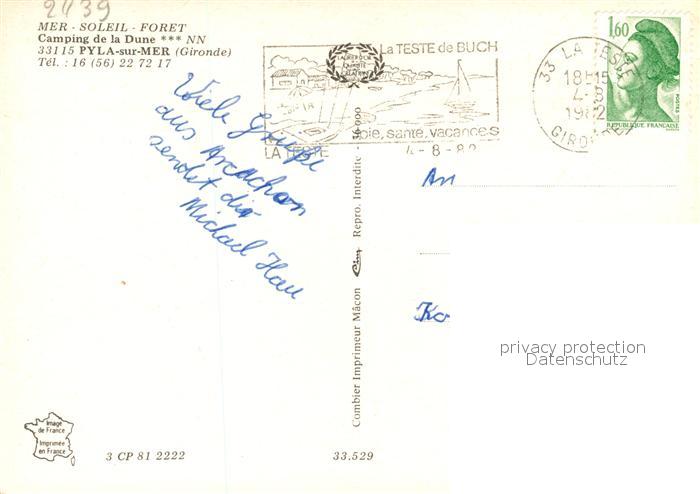 2439
MER - SOLEIL - FORET
Camping de la Dune *** NN
33115 PYLA-sur-MER (Gironde)
Tél. : 16 (56) 22 72 17
La TESTE de BUCH
joie, santé, vacances
LA TESTE
4-8-82
33 LA TESTE
18H15
4-8
1982
GIRONDE
1,60
POSTES
REPUBLIQUE FRANÇAISE
Viele Grüße
aus Arcachon
sendet dir
Michael Hau
An
Ko
privacy protection
Datenschutz
Combier Imprimeur Mâcon Cim Repro. Interdite -
Image
de France
Imprimée
en France
3 CP 81 2222
33.529